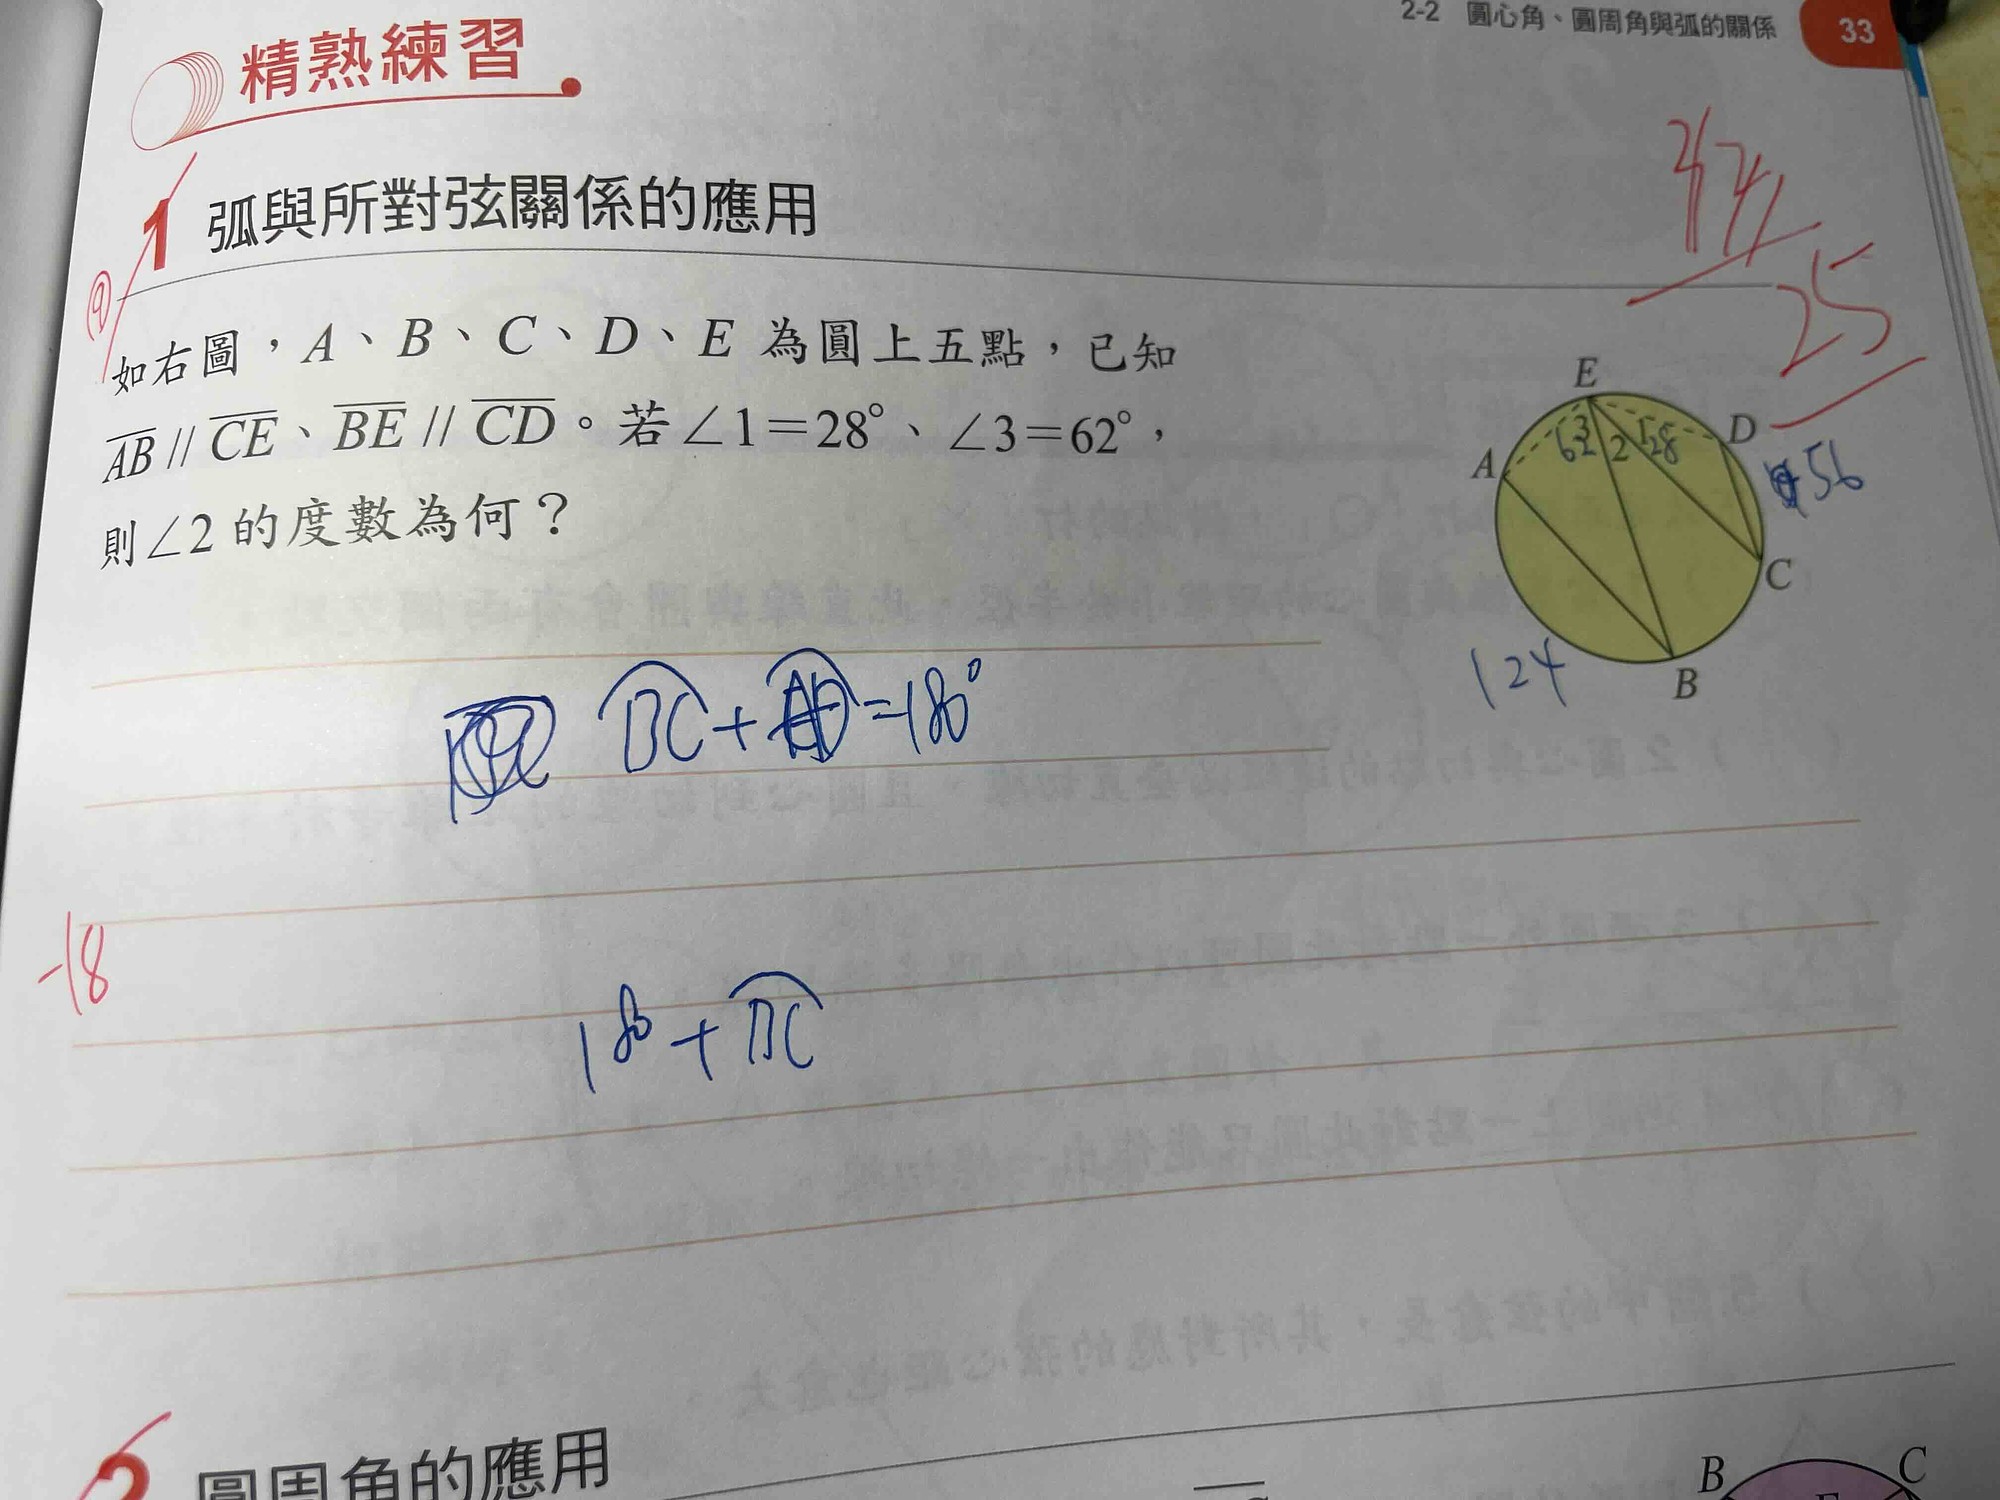 2-2 圓心角、圓周角與弧的關係 33
精熟練習
1 弧與所對弦關係的應用
如右圖，A、B、C、D、E 為圓上五點，已知
AB // CE、BE // CD。若∠1＝28°、∠3＝62°，
則∠2 的度數為何？
25
E
D
A
3
62
2
1
28
56
C
B
124
BC + =180°
-18
180 + BC
2 圓周角的應用
B
C
E